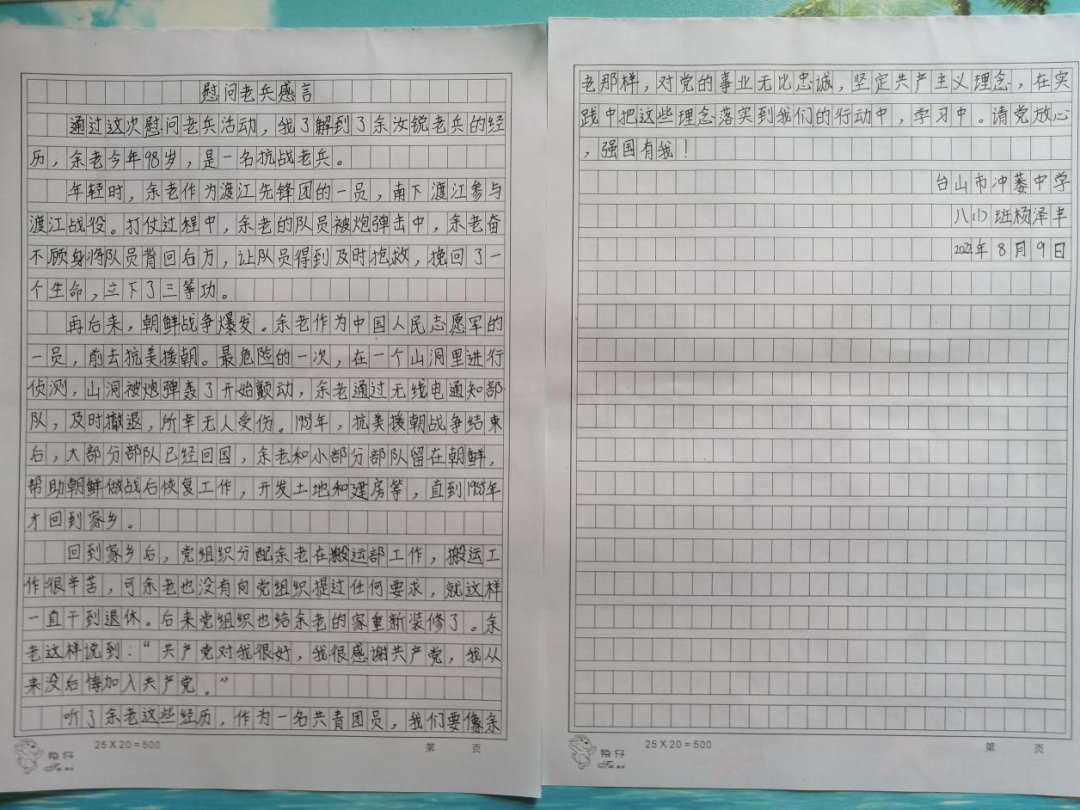 慰问老兵感言
通过这次慰问老兵活动，我了解到了余汝锐老兵的经
历，余老今年98岁，是一名抗战老兵。
年轻时，余老作为渡江先锋团的一员，南下渡江参与
渡江战役。打仗过程中，余老的队员被炮弹击中，余老奋
不顾身将队员背回后方，让队员得到及时抢救，挽回了一
个生命，立下了三等功。
再后来，朝鲜战争爆发。余老作为中国人民志愿军的
一员，前去抗美援朝。最危险的一次，在一个山洞里进行
侦测，山洞被炮弹轰了开始颤动，余老通过无线电通知部
队，及时撤退，所幸无人受伤。1953年，抗美援朝战争结束
后，大部分部队已经回国，余老和小部分部队留在朝鲜，
帮助朝鲜做战后恢复工作，开发土地和建房等，直到1955年
才回到家乡。
回到家乡后，党组织分配余老在搬运部工作，搬运工
作很辛苦，可余老也没有向党组织提过任何要求，就这样
一直干到退休。后来党组织也给余老的家重新装修了。余
老这样说到：“共产党对我很好，我很感谢共产党，我从
来没后悔加入共产党。”
听了余老这些经历，作为一名共青团员，我们要像余
25×20=500
第 页
老那样，对党的事业无比忠诚，坚定共产主义理念，在实
践中把这些理念落实到我们的行动中，学习中。请党放心
，强国有我！
台山市冲蒌中学
八(1)班杨泽丰
2022年8月9日
25×20=500
第 页